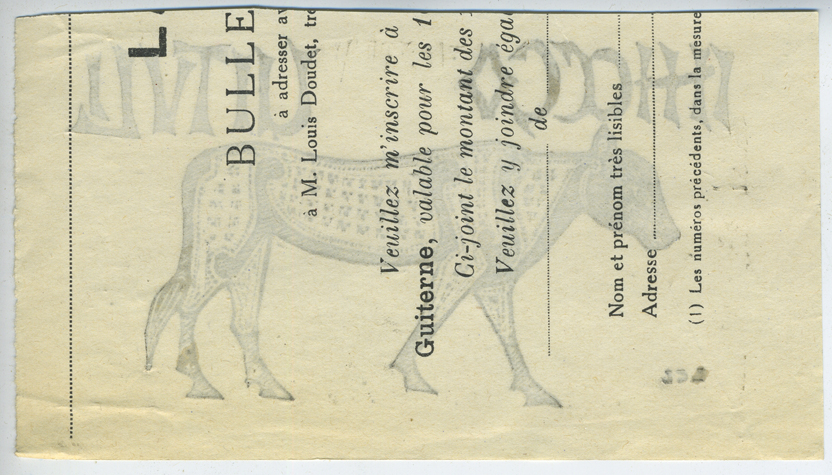 L
BULLE
à adresser av
à M. Louis Doudet, tré
Veuillez m'inscrire à
Guiterne, valable pour les 1
Ci-joint le montant des
Veuillez y joindre éga
de
Nom et prénom très lisibles
Adresse
(1) Les numéros précédents, dans la mesure